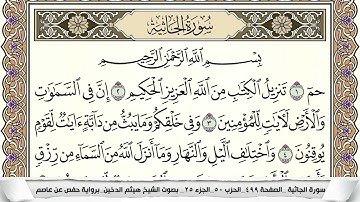 سُورَةُ الجَاثِيَةِ
بِسْمِ اللَّهِ الرَّحْمَٰنِ الرَّحِيمِ
حمٓ ١ تَنزِيلُ ٱلْكِتَٰبِ مِنَ ٱللَّهِ ٱلْعَزِيزِ ٱلْحَكِيمِ ٢ إِنَّ فِى ٱلسَّمَٰوَٰتِ
وَٱلْأَرْضِ لَءَايَٰتٍ لِّلْمُؤْمِنِينَ ٣ وَفِى خَلْقِكُمْ وَمَا يَبُثُّ مِن دَآبَّةٍ ءَايَٰتٌ لِّقَوْمٍ
يُوقِنُونَ ٤ وَٱخْتِلَٰفِ ٱلَّيْلِ وَٱلنَّهَارِ وَمَآ أَنزَلَ ٱللَّهُ مِنَ ٱلسَّمَآءِ مِن رِّزْقٍ
سورة الجاثية _ الصفحة ٤٩٩ _ الحزب ٥٠ _ الجزء ٢٥ _ بصوت الشيخ هيثم الدخين _ برواية حفص عن عاصم